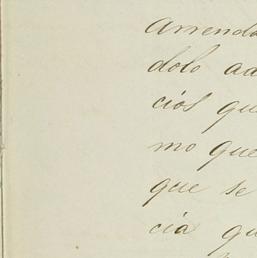 arrenda
dolo ad
cios qu
mo que
que se
cia qu